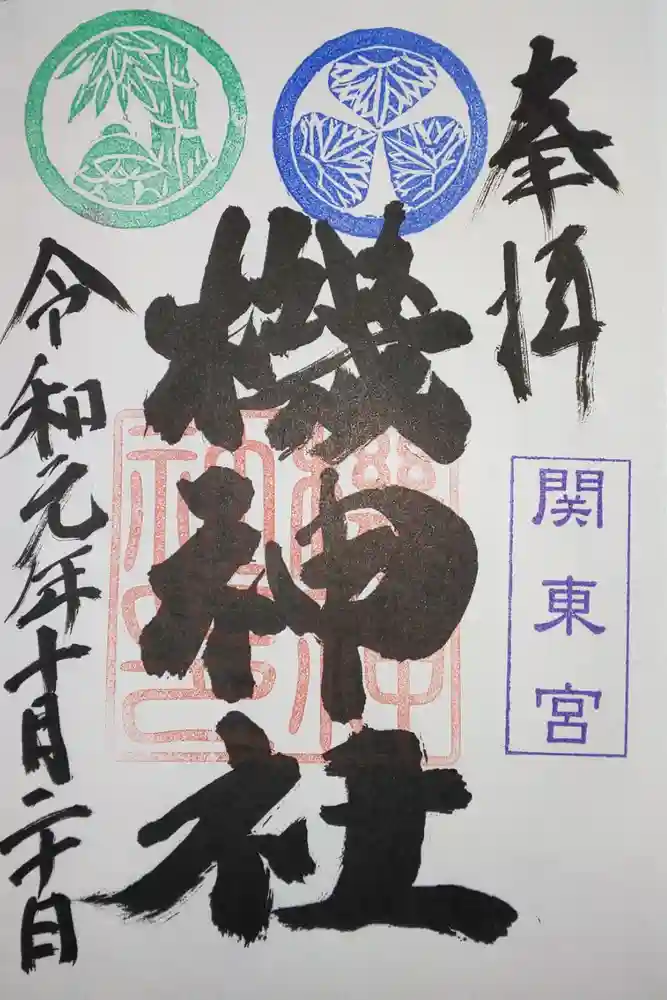 奉拝
関東宮
機神社
令和元年十月二十日